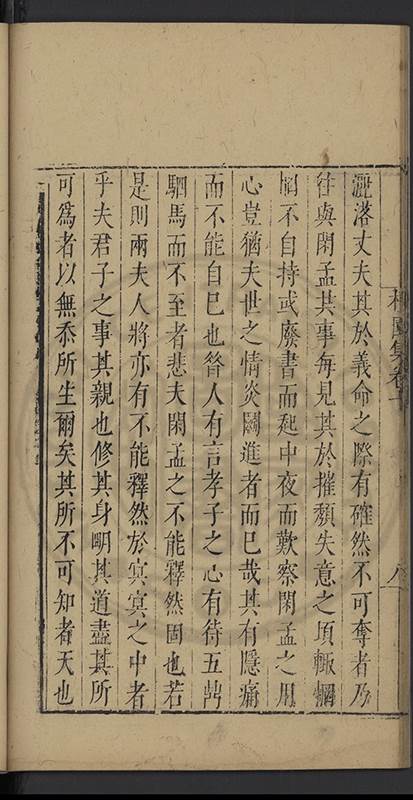 灑落丈夫其於義命之際有確然不可奪者乃
往與閑孟共事每見其於摧頹失意之頃輒惘
惘不自持或廢書而起中夜而歎察閑孟之用
心豈猶夫世之情炎鬭進者而已哉其有隱痛
而不能自已也昝人有言孝子之心有待五鼎
駟馬而不至者悲夫閑孟之不能釋然固也若
是則兩夫人將亦有不能釋然於㝠㝠之中者
乎夫君子之事其親也修其身明其道盡其所
可爲者以無忝所生爾矣其所不可知者天也
集卷
八